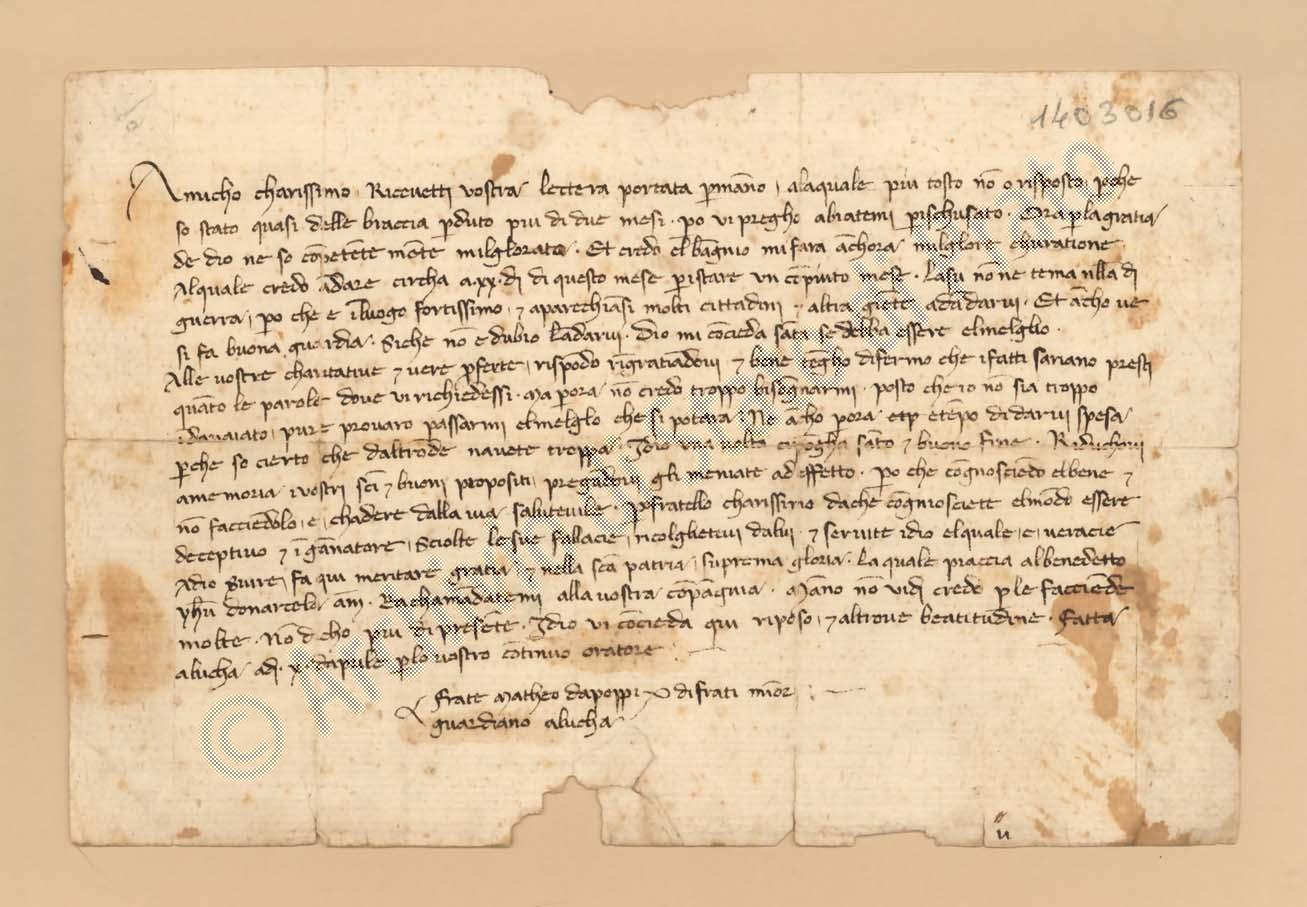 1403016
Amicho charissimo, Ricevetti vostra lettera portata p̱ mano, alaquale piu tosto nō o risposto, p̱che
so stato quasi delle braccia p̱duto piu di due mesi. po vi pregho abiatemi p̱ischusato. Ora p̱ la gratia
de dio ne so cōpetēte mēte milglorato. Et credo el bagnio mi fara āchora milglore churatione.
Alquale credo ādare circha a.xx. dì di questo mese p̱ istare un cōpiuto mese. Lasu nō ne tema nulla di
guerra, po che e iluogo fortissimo, ⁊ aparechiāsi molti cittadini altra giēte adādarvi. Et ācho ve
si fa buona guardia. Siche nō e dubio lādarvi. Dio mi cōcieda sāta se debba essere elmelglio.
Alle vostre charitative ⁊ vere p̱ferte, rispōdo rīgratiādovi ⁊ bene tēgho di fermo che ifatti sariano presti
quāto le parole dove vi richiedessi. Ma p̱ ora nō credo troppo bisōgnarmi. posto che io nō sia troppo
pure provaro passarmi elmelglo che si potara. Ne ācho p̱ ora tēpo di darvi spesa
p̱che so cierto che daltrōde navete troppa. Idio una volta sāto ⁊ buono fine. Riduchovi
a memoria i vostri scī ⁊ buoni propositi, pregādovi gli meniate ad effetto. Po che cognosciēdo el bene ⁊
nō facciēdolo, e, chadere dalla via salutevile. Po fratello charissimo da che cōgnosciete elmōdo essere
deceptivo ⁊ īgānatore, Sciolte le sue fallacie, ricolglietevi dalui. ⁊ servite idio elquale, e, veracie
A dio s̱vire, fa qui meritare gratia, ⁊ nella scā patria, suprema gloria. La quale piaccia al benedetto
yħu donarcela am̄. Rachamādatemi alla vostra cōpāgnia. Māno nō vidi credo p̱ le facciēde
molte. Nō d cho piu di presēte. Idio vi cōcieda qui riposo, ⁊ altrove beatitudine. Fatta
a lucha adì x. daprile p̱ lo vostro cōtinuo oratore
Frate Matheo da poppi di frati minor
guardiano a lucha